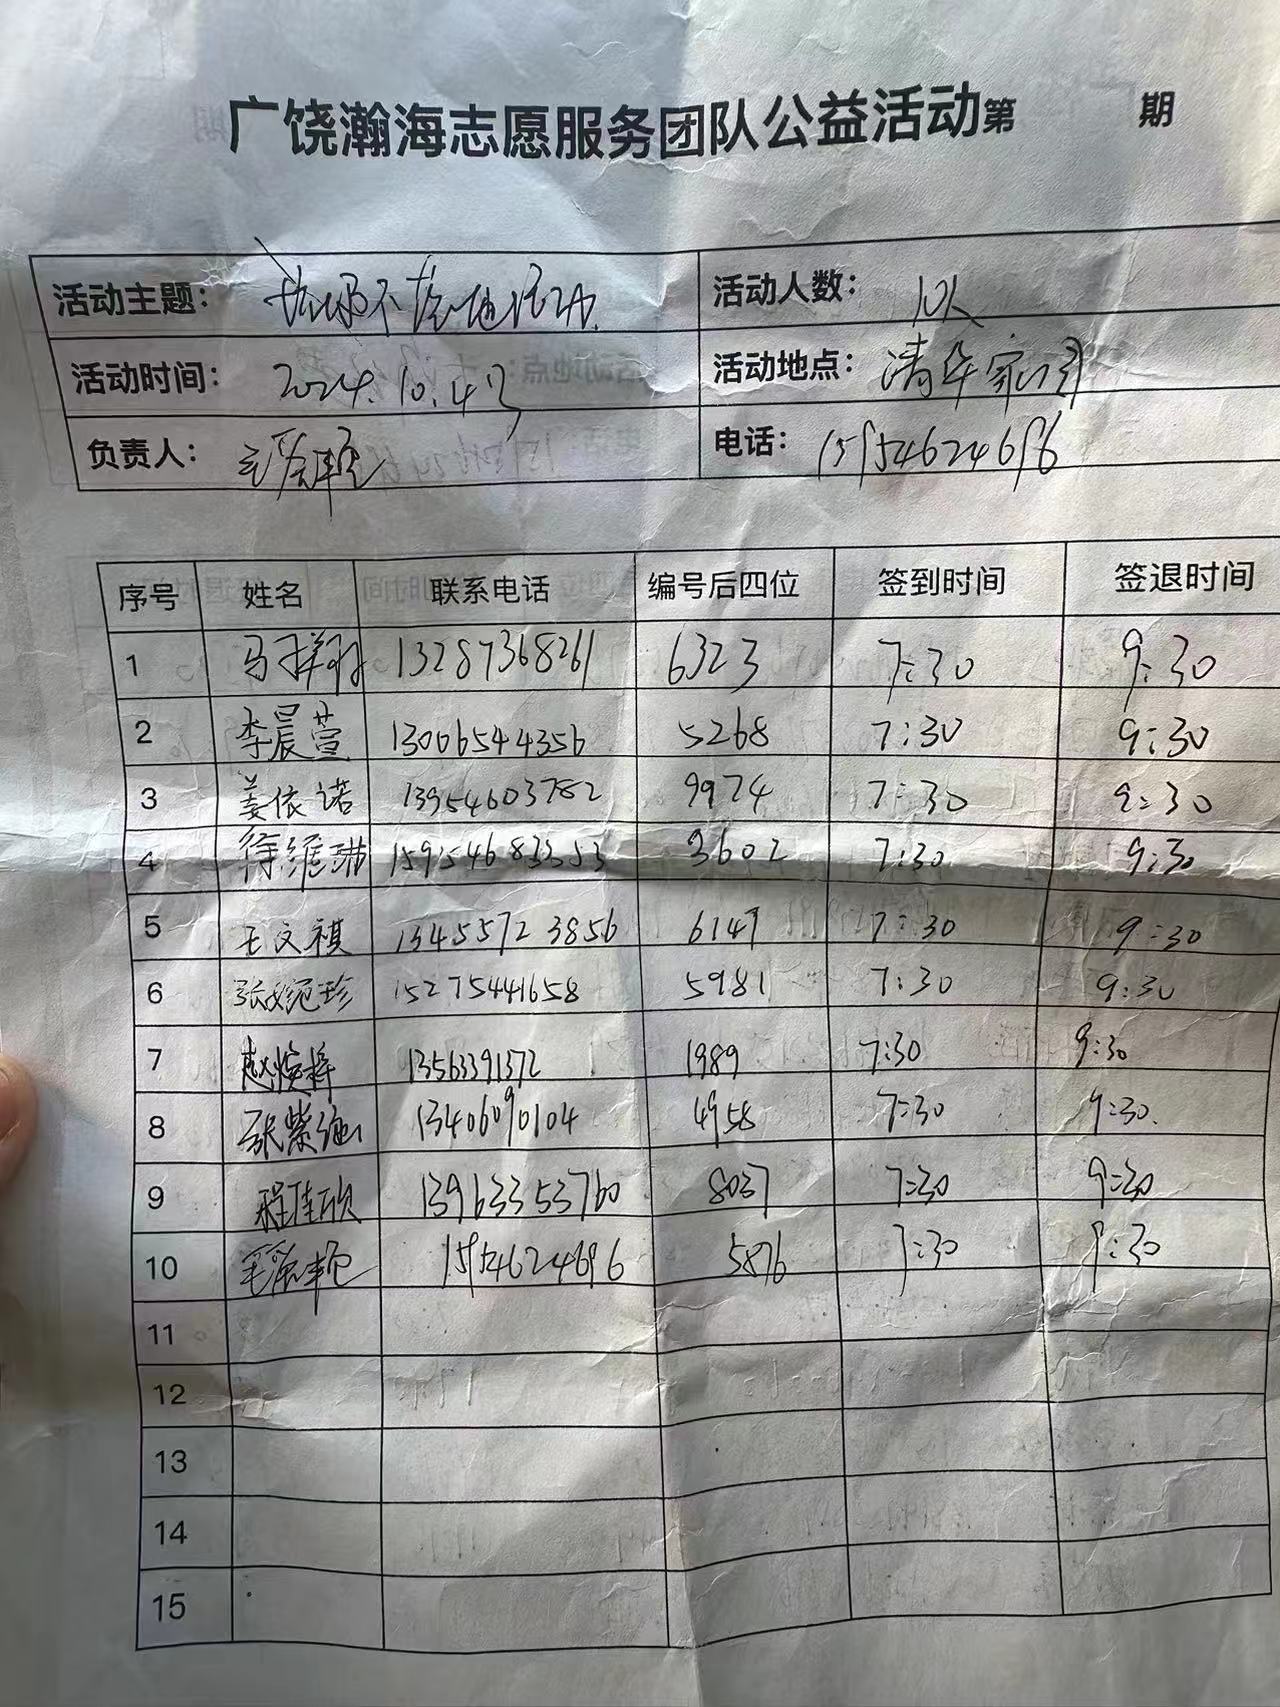 广饶瀚海志愿服务团队公益活动第 期
活动主题: 垃圾不落地活动. 活动人数: 10人
活动时间: 2024.10.4号 活动地点: 清华家园
负责人: 电话: 15954624696
序号 姓名 联系电话 编号后四位 签到时间 签退时间
1 马子翔 13287368261 6323 7:30 9:30
2 李晨萱 13006544356 5268 7:30 9:30
3 姜依诺 13954603782 9974 7:30 9:30
4 徐维琳 15954683353 3602 7:30 9:30
5 王文祺 13455723856 6147 7:30 9:30
6 张 珍 15275441658 5981 7:30 9:30
7 赵 13563391372 1989 7:30 9:30
8 张紫涵 13406090104 4958 7:30 9:30.
9 程佳欣 13963353760 8037 7:30 9:30
10 15954624696 5876 7:30 9:30
11
12
13
14
15